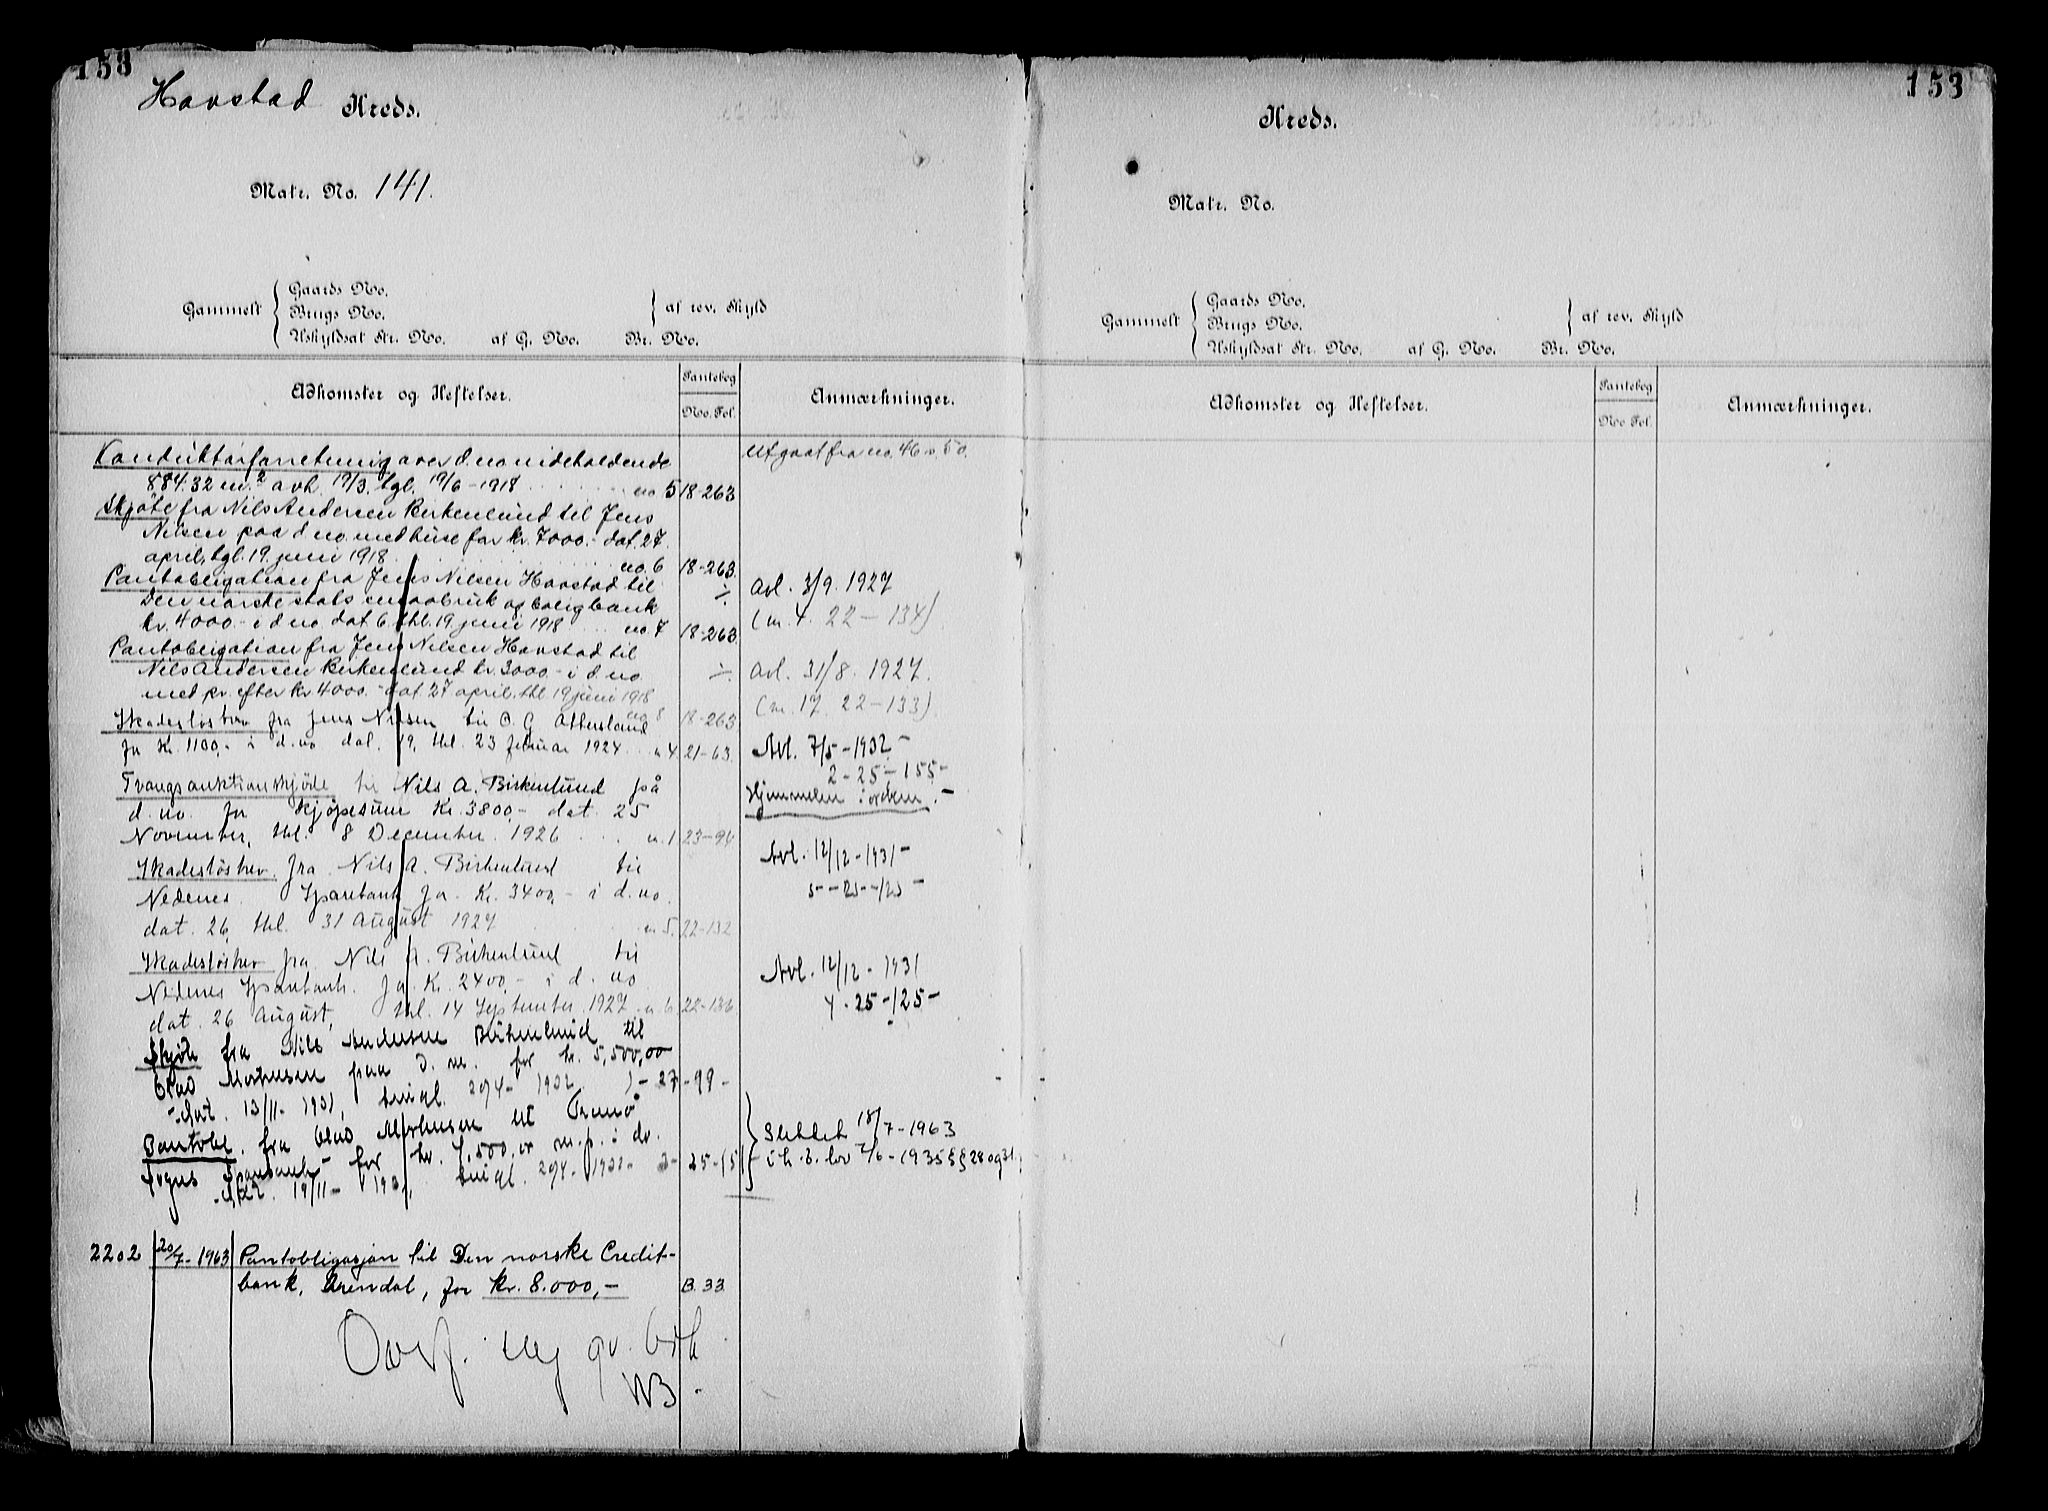 153
Havstad Kreds.
Matr. No. 141.
Gammelt
Gaards No.
Brugs No.
Uskyldsat Str. No. af G. No. Br. No.
af rev. Skyld
Adkomster og Heftelser.
Pantebog
No. Fol.
Anmærkninger.
Konduktørforretning over d. no indeholdende
884.32 m.² avh. 19/3. tgl. 19/6-1918 no 5 18-263
Utgaat fra no. 46 o. 50.
Skjøte fra Nils Andersen Birkenlund til Jens
Nilsen paa d no. med huse for kr. 7000.- dat. 27
april, tgl. 19. juni 1918 no. 6 18-263.
Pantobligation fra Jens Nilsen Havstad til
Den norske stats smaabruk og boligbank
kr. 4000.- i d no dat 6. thl. 19 juni 1918 no. 7 18-263
Avl. 3/9. 1927
(n. 4. 22-134)
Pantobligation fra Jens Nilsen Havstad til
Nils Andersen Birkenlund kr. 3000.- i d. no.
med pr. efter kr. 4000.- dat. 27 april. thl. 19 juni 1918
no 8 18-263
Avl. 31/8. 1927.
(n. 17. 22-133)
Skadesløsbrev fra Jens Nilsen til O. G. Attersland
for Kr. 1100,- i d. no dat. 19, thl. 23 februar 1924 n 4 21-63.
Avl. 7/5-1932-
2-25-155-
Tvangsauktionsskjøte til Nils A. Birkenlund på
d. no. for kjøpesum Kr. 3800,- dat. 25
November, thl. 8 December. 1926 n. 1 23-94
Hjemmelen i orden.-
Skadesløsbrev. fra Nils A. Birkenlund til
Nedenes Sparebank for Kr. 3400,- i d. no.
dat. 26, thl. 31 August 1927 n 5. 22-132
Avl. 12/12-1931-
5--25--125
Skadesløsbrev fra Nils A. Birkenlund til
Nedenes Sparebank. for Kr. 2400,- i d. no
dat. 26 August, thl. 14 September. 1927 n 6. 22-136
Avl. 12/12-1931
4.25-125-
Skjøte fra Nils Andersen Birkenlund til
Olav Mortensen paa d. no. for kr. 5,500,00
dat. 13/11-1931, tingl. 29/4-1932. 1-27-99-
Pantobl. fra Olav Mortensen til Tromø
Sogns Sparebank for kr. 4,500,00 m.p. i do.
dat. 19/11-1931, tingl. 29/4-1932- 2-25-151
Slettet 18/7-1963
i h. t. lov 7/6-1935 §§ 28 og 31.
2202 20/7-1963 Pantobligasjon til Den norske Credit-
bank, Arendal, for kr. 8.000,- B. 33.
Overf.
153
Kreds.
Matr. No.
Gammelt
Gaards No.
Brugs No.
Uskyldsat Str. No. af G. No. Br. No.
af rev. Skyld
Adkomster og Heftelser.
Pantebog
No Fol.
Anmærkninger.